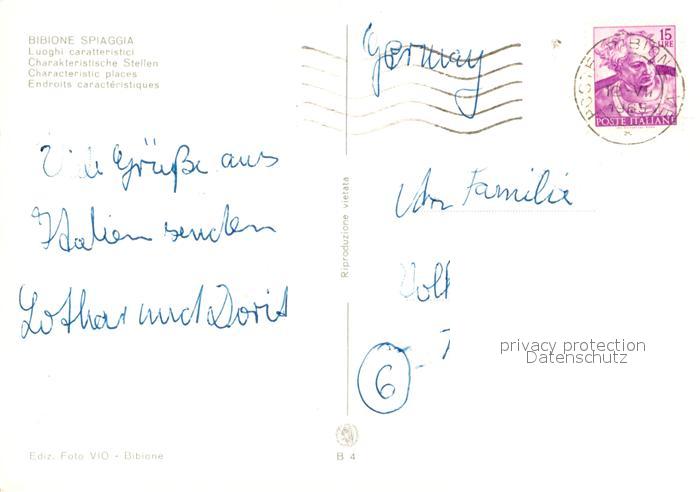 BIBIONE SPIAGGIA
Luoghi caratteristici
Charakteristische Stellen
Characteristic places
Endroits caractéristiques
Germay
15
LIRE
POSTE ITALIANE
Grüße aus
Italien senden
Lothar und Dorit
Riproduzione vietata
An Familie
6
privacy protection
Datenschutz
Ediz. Foto VIO - Bibione
B 4